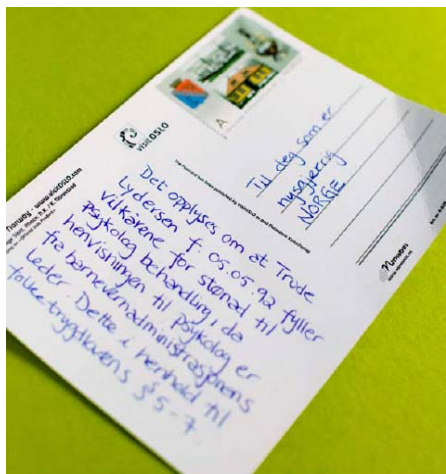 VISITOSLO
A
Til deg som er
nysgjerrig
NORGE
Det opplyses om at Trude
Lydersen f. 05.05.92 fyller
vilkårene for stønad til
psykolog behandling, da
henvisningen til psykolog er
fra barnevernadministrasjonens
leder. Dette i henhold til
folketrygdlovens § 5-7.